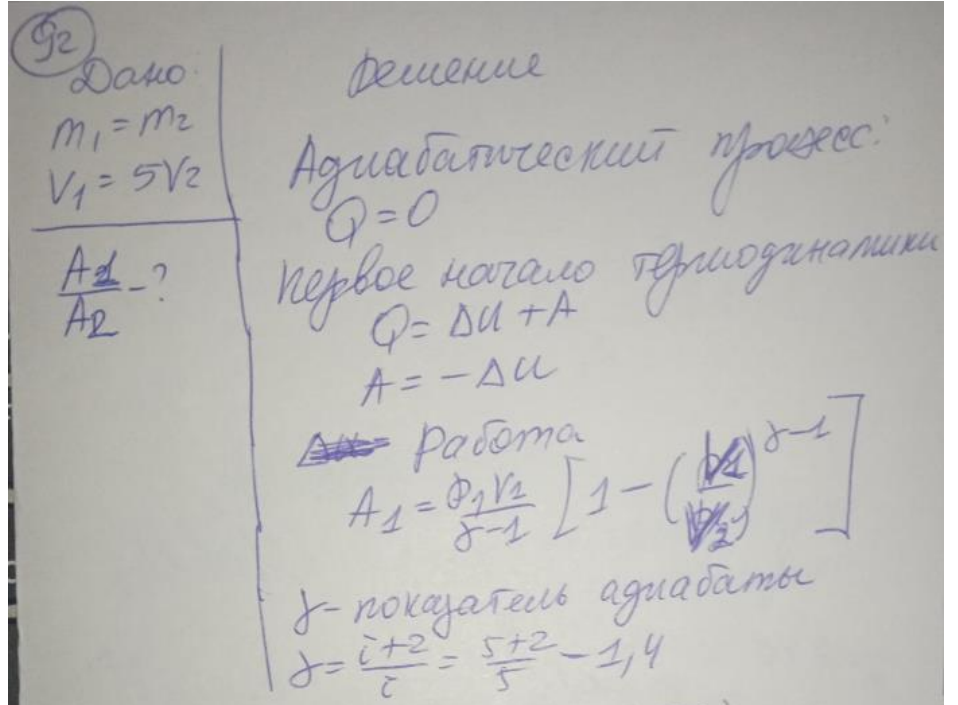 92
Дано:
m₁ = m₂
V₁ = 5V₂
A1/A2 - ?
Решение
Адиабатический процесс:
Q = 0
первое начало термодинамики
Q = ΔU + A
A = - ΔU
Работа
A₁ = P₁V₁/γ-1 [1 - (V₁/V₂)^γ-1]
γ - показатель адиабаты
γ = i+2/i = 5+2/5 - 1,4